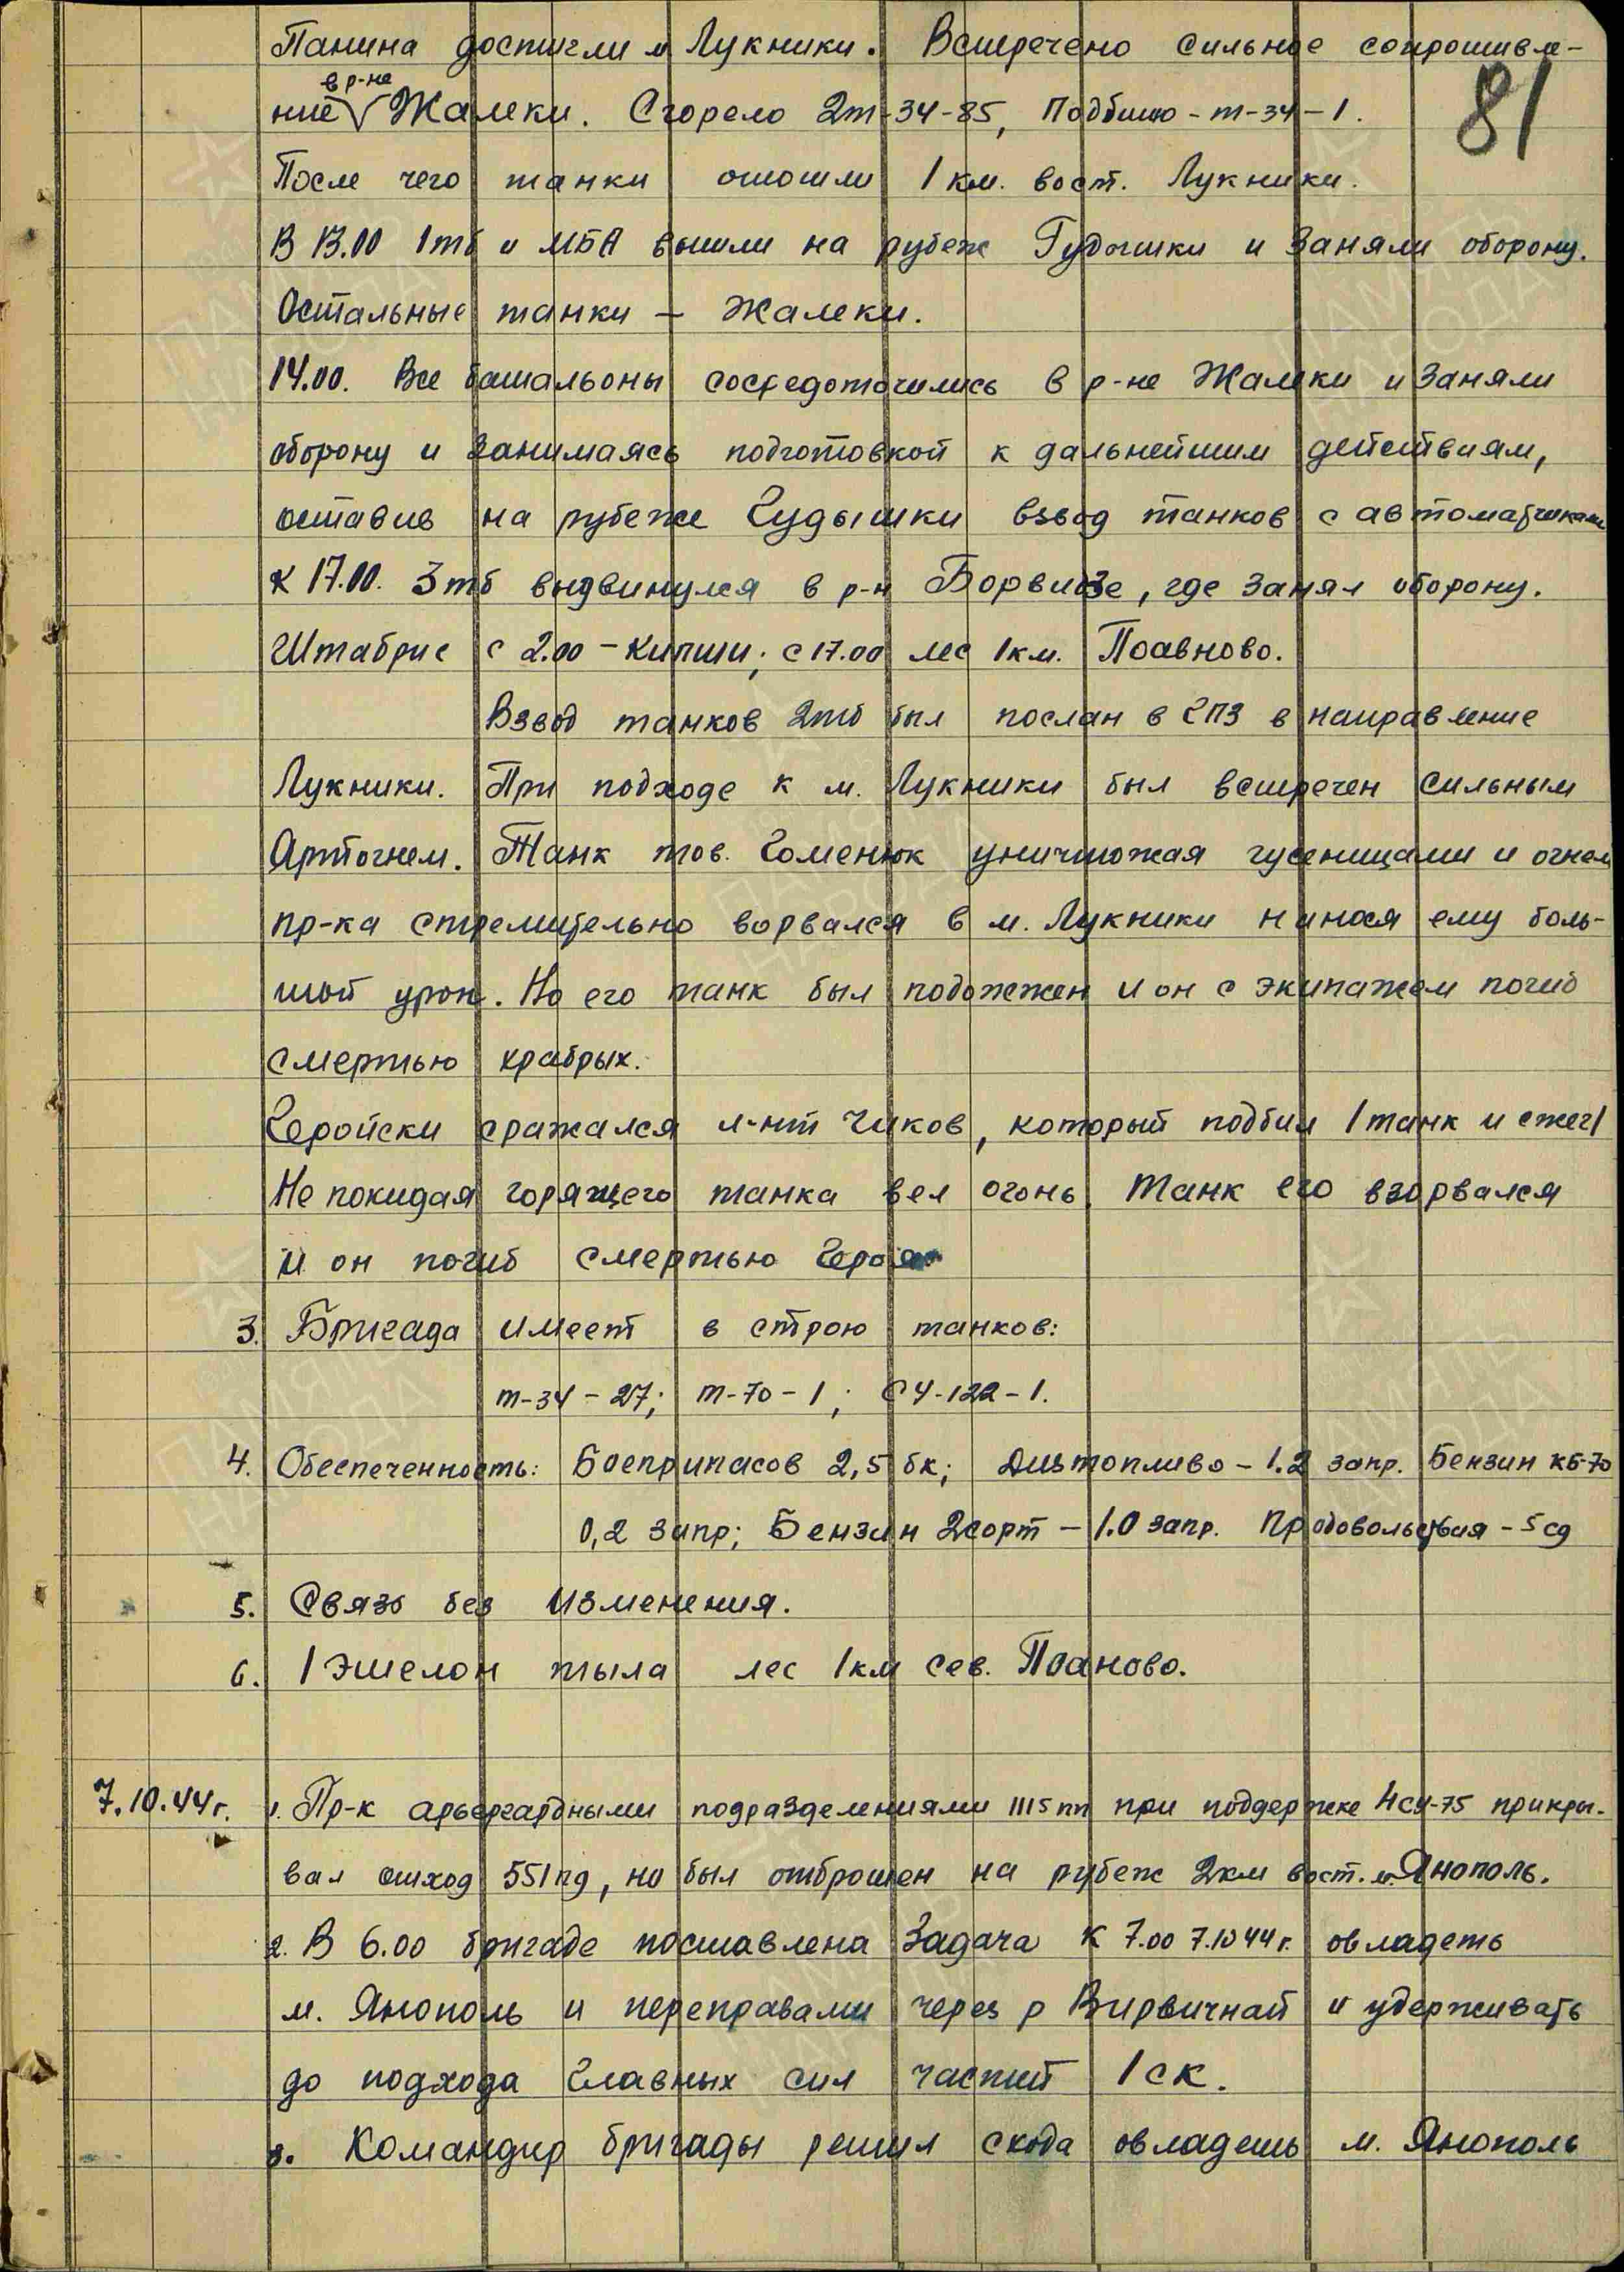 Панина достигли м Лукники. Встречено сильное сопротивле-
81
в р-не
ние Жалеки. Сгорело 2т-34-85, Подбито - т-34-1.
После чего танки отошли 1 км. вост. Лукники.
В 13.00 1тб и МБА вышли на рубеж Гудышки и заняли оборону.
Остальные танки - Жалеки.
14.00. Все батальоны сосредоточились в р-не Жалеки и заняли
оборону и занимаясь подготовкой к дальнейшим действиям,
оставив на рубеже Гудышки взвод танков с автоматчиками
К 17.00. 3тб выдвинулся в р-н Борвизе, где занял оборону.
Штабриг с 2.00 - Кипши; с 17.00 лес 1км. Поавново.
Взвод танков 2тб был послан в ГПЗ в направление
Лукники. При подходе к м. Лукники был встречен сильным
Артогнем. Танк тов. Гоменюк уничтожая гусеницами и огнем
пр-ка стремительно ворвался в м. Лукники нанося ему боль-
шой урон. Но его танк был подожжен и он с экипажем погиб
смертью храбрых.
Геройски сражался л-нт Чиков, который подбил 1 танк и сжег 1
Не покидая горящего танка вел огонь. Танк его взорвался
и он погиб смертью Героя
3. Бригада имеет в строю танков:
т-34 - 27; т-70 - 1; СУ-122 - 1.
4. Обеспеченность: Боеприпасов 2,5 бк; Дизтопливо - 1.2 запр. Бензин КБ-70
0,2 запр; Бензин 2сорт - 1.0 запр. Продовольствия - 5 сд
5. Связь без изменения.
6. 1 эшелон тыла лес 1км сев. Поаново.
7.10.44г. 1. Пр-к арьергардными подразделениями 1115 пп при поддержке 4 СУ-75 прикры-
вал отход 551пд, но был отброшен на рубеж 2км вост. м. Янополь.
2. В 6.00 бригаде поставлена задача к 7.00 7.10 44г. овладеть
м. Янополь и переправами через р Вирвичнай и удерживать
до подхода Главных сил частей 1 ск.
3. Командир бригады решил схода овладеть м. Янополь
ПАМЯТЬ НАРОДА